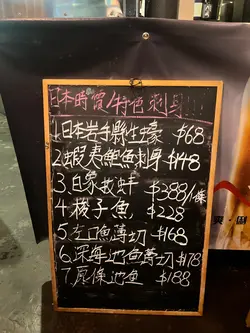 日本時價/特色刺身
1.日本岩手縣生蠔 $68
2.蝦夷鮑魚刺身 $148
3.自家放 $388/1條
4.梭子魚 $228
5.左口魚薄切 $168
6.深海池魚薄切 $178
7.尾條池魚 $188